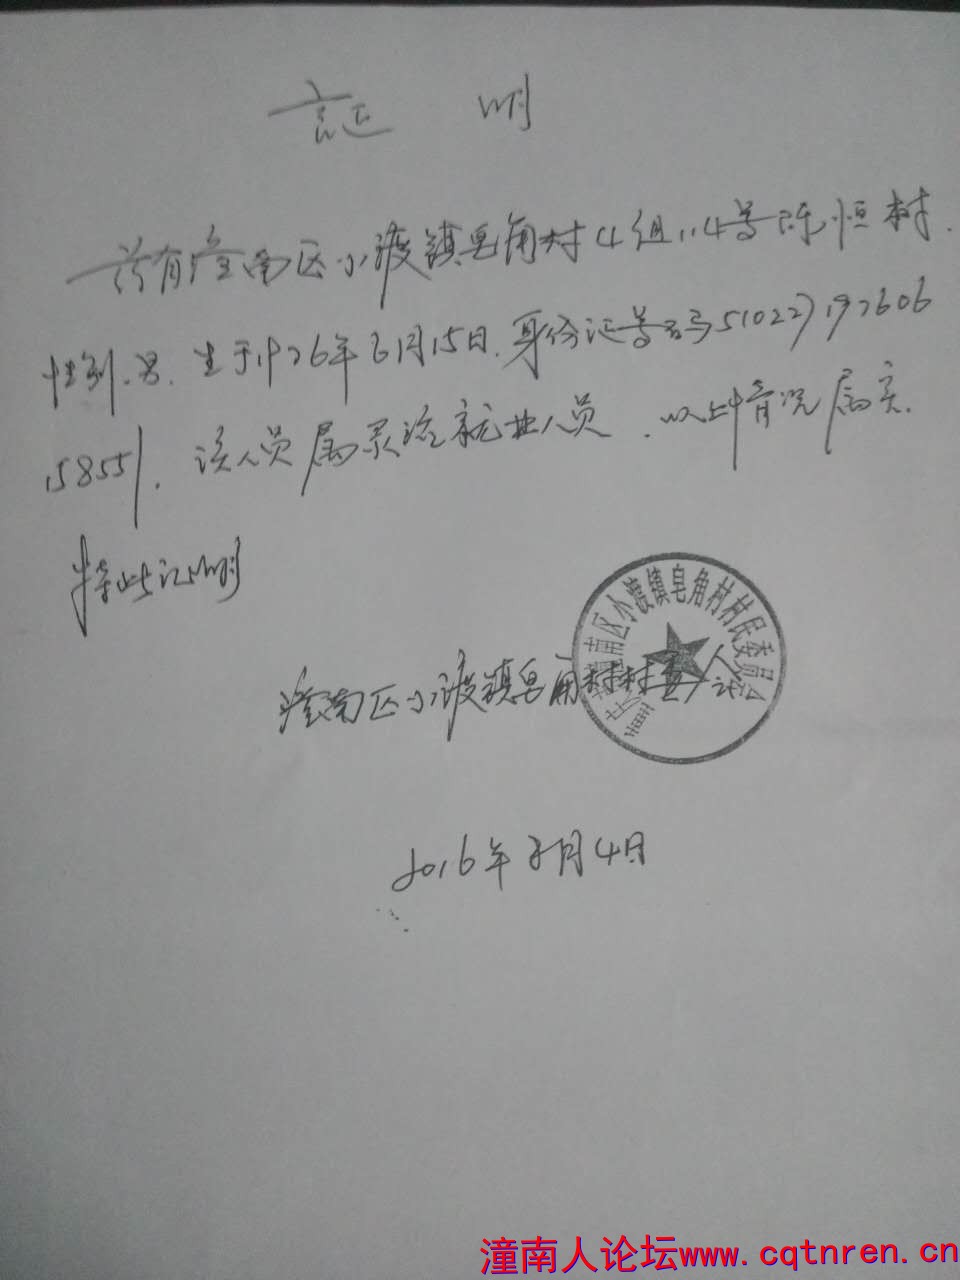 证 明
兹有潼南区小渡镇皂角村4组114号陈恒树.
性别.男.生于1976年6月15日.身份证号码510227197606
158551.该人员属灵活就业人员.以上情况属实.
特此证明
潼南区小渡镇皂角村村委
潼南区小渡镇皂角村村民委员会
2016年3月4日
潼南人论坛www.cqtnren.cn